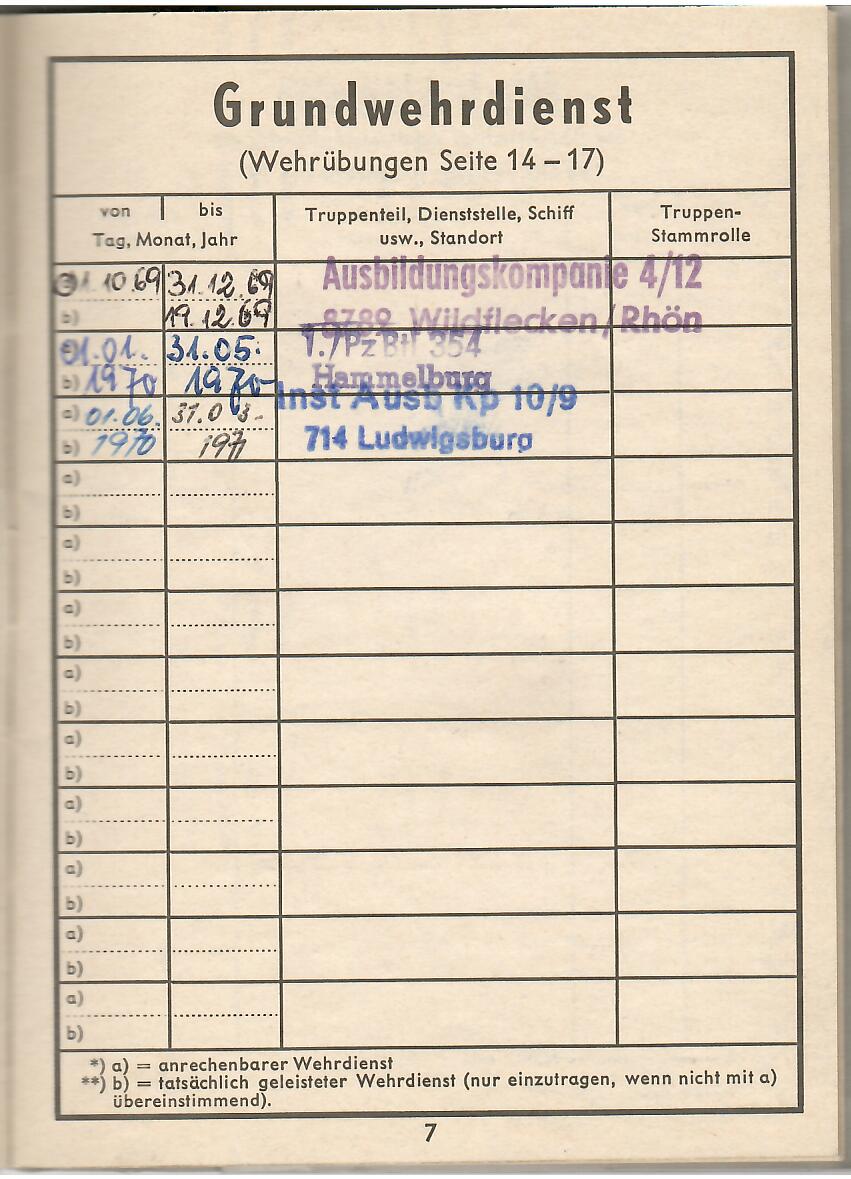 Grundwehrdienst
(Wehrübungen Seite 14 – 17)
von bis
Tag, Monat, Jahr
Truppenteil, Dienststelle, Schiff
usw., Standort
Truppen-
Stammrolle
01.10.69 31.12.69 Ausbildungskompanie 4/12
b) 19.12.69 8789 Wildflecken/Rhön
01.01. 31.05. 1./PzBtl 354
b) 1970 1970 Hammelburg
Inst Ausb Kp 10/9
a) 01.06. 31.03.
b) 1970 1971 714 Ludwigsburg
a)
b)
a)
b)
a)
b)
a)
b)
a)
b)
a)
b)
a)
b)
a)
b)
a)
b)
*) a) = anrechenbarer Wehrdienst
**) b) = tatsächlich geleisteter Wehrdienst (nur einzutragen, wenn nicht mit a)
übereinstimmend).
7